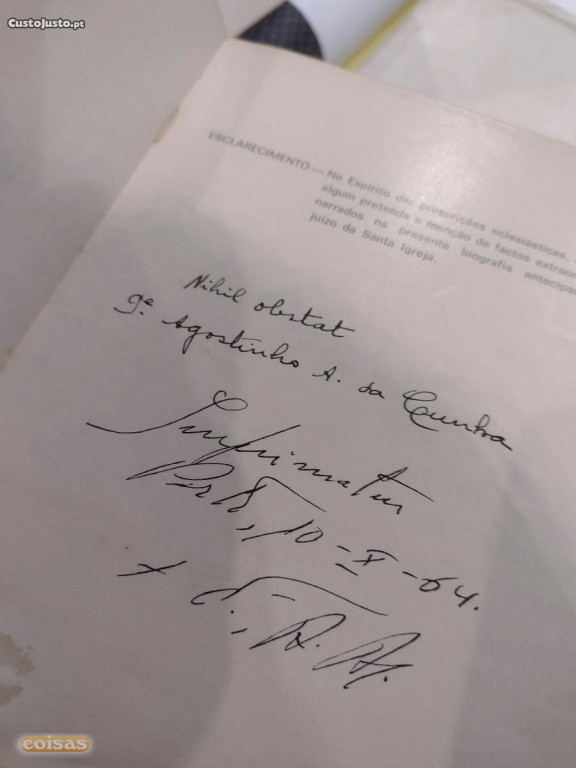 CustoJusto.pt
ESCLARECIMENTO — No Espírito das prescrições eclesiásticas,
algum pretende a menção de factos extraor
narrados na presente biografia antecipa
juízo da Santa Igreja.
Nihil obstat
Agostinho A. da Cunha
Imprimatur
10-X-64.
+
coisas